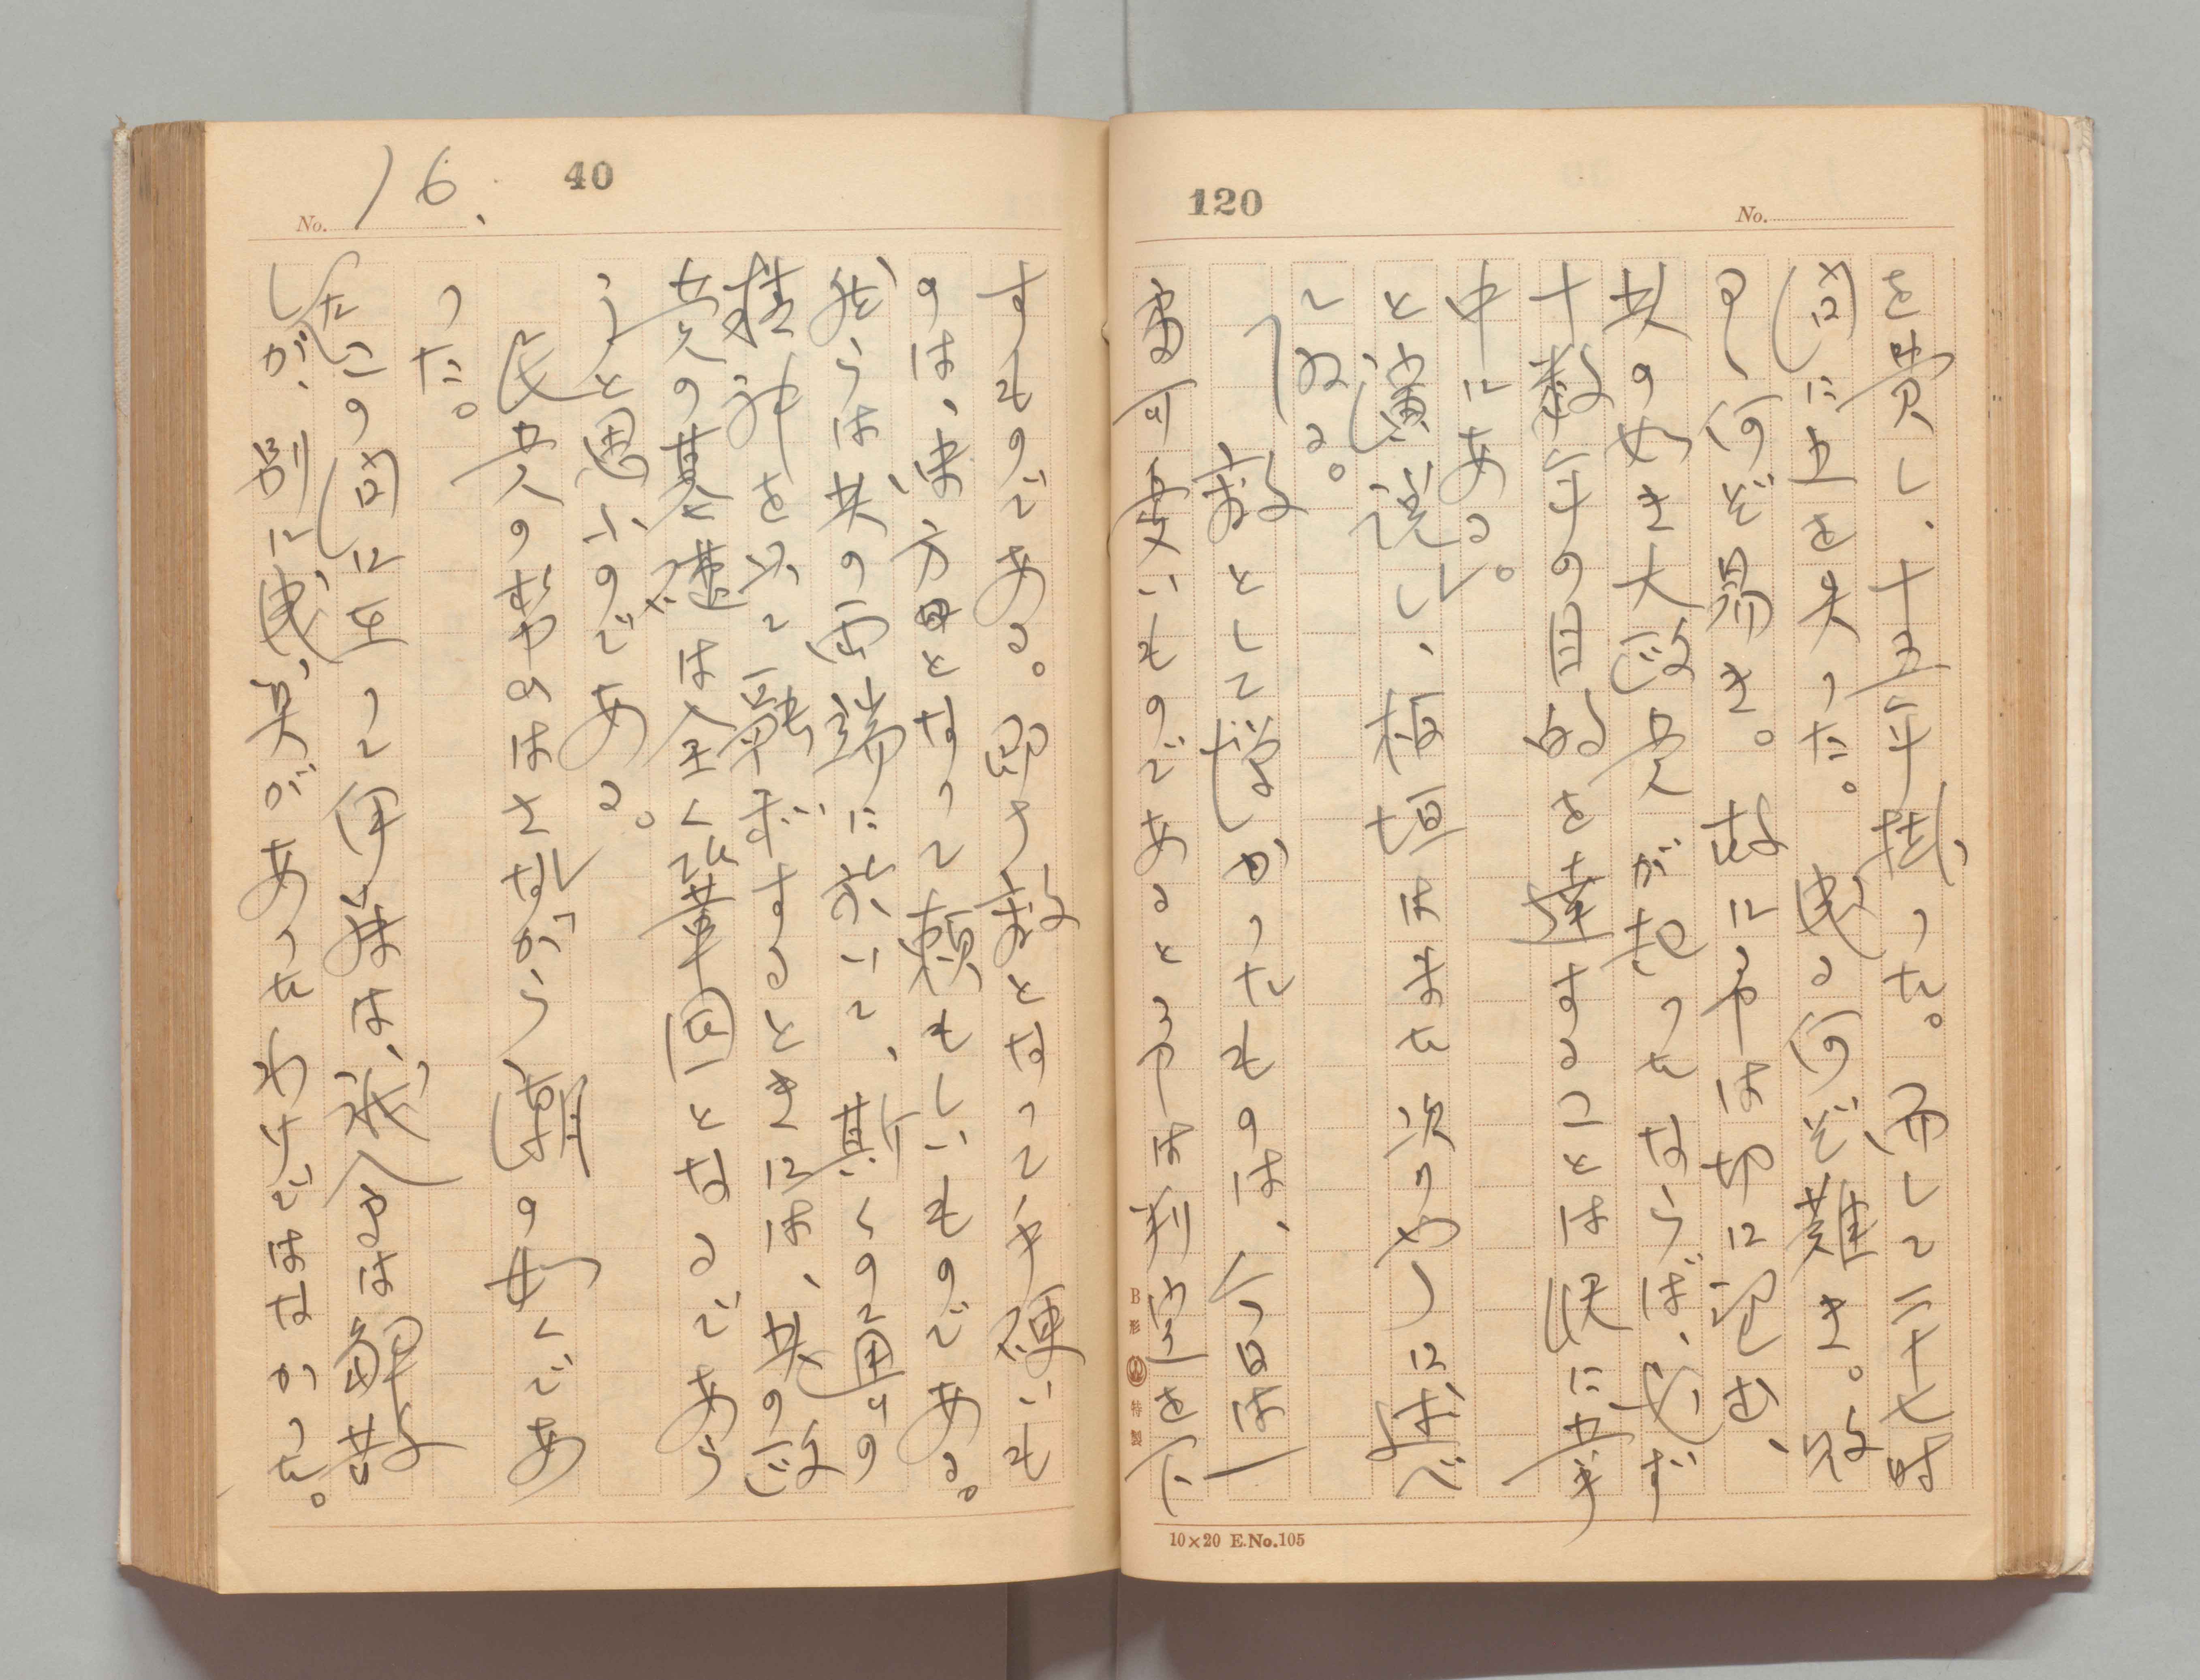 120
No.
を費し、十五年掛った。而して二十七時
間に五を失った。成る何ぞ難き。敗
るゝ何ぞ易き。故に予は切に望む、
此の如き大政党が起ったならば、必ず
十数年の目的を達することは既に掌
中にある。」
と演説し、板垣はまた次のやうに述べ
てゐる。
「敵として憚かったものは、今日は一
番可愛いものであると予は判定を下
B形 特製
10×20 E.No.105
40
No. 16.
すものである。即ち敵となって手硬いも
のは、味方となって頼もしいものである。
然らば此の両端に於いて、斯くの通りの
精神を以てするときには、此の政
党の基礎は全く鞏固となるであら
うと思ふのである。」
民党の勢ひはさながら潮の如くであ
った。
この間に在って伊藤は、解散
したが、別に成算があったわけではなかった。